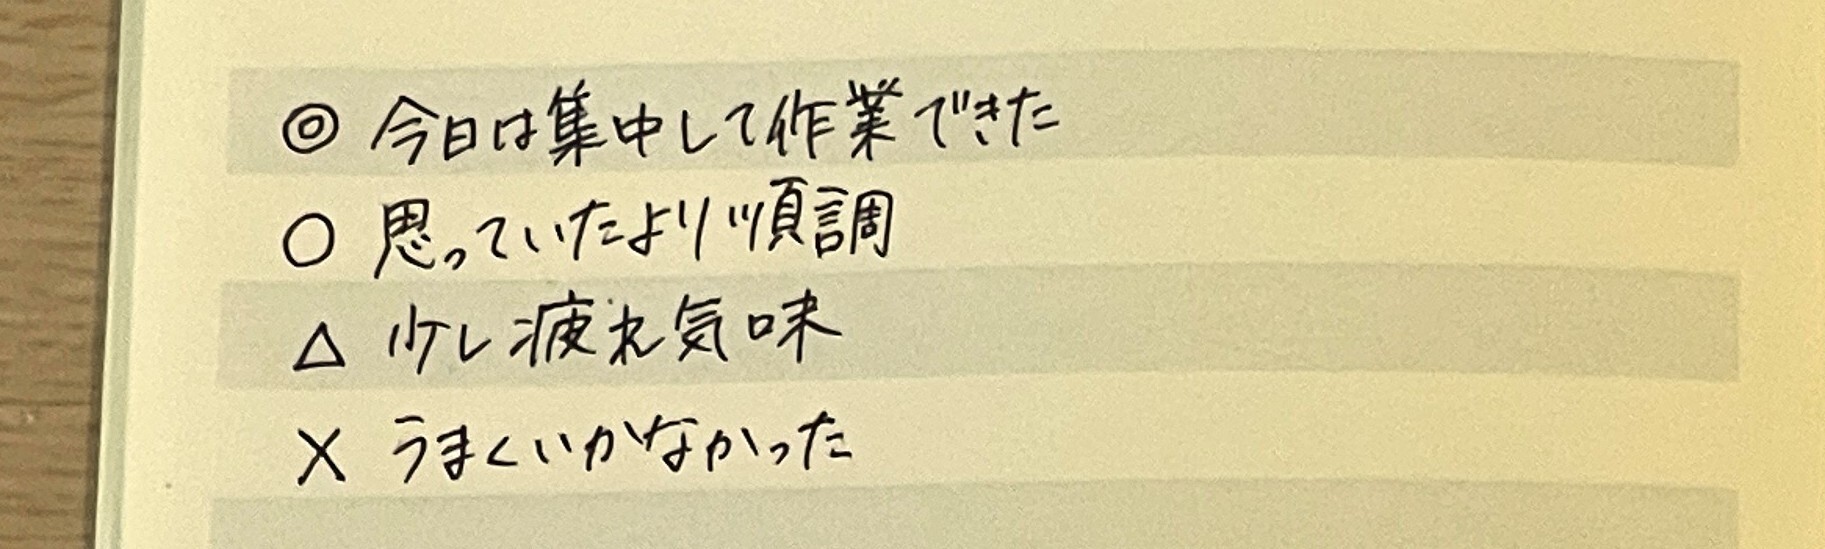 ◎ 今日は集中して作業できた
○ 思っていたより順調
△ 少し疲れ気味
× うまくいかなかった